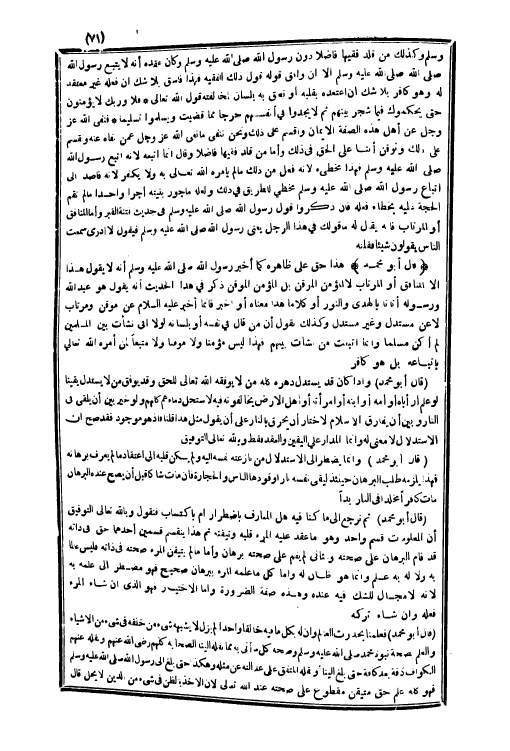 (٧١)
وسلم وكذلك من قلد فقيها فاضلا دون رسول الله صلى الله عليه وسلم وكان عقده أنه لا يتبع رسول الله
صلى الله عليه وسلم الا ان وافق قوله قول ذلك الفقيه فهذا فاسق بلا شك ان فعله غير معتقد
له وهو كافر بلا شك ان اعتقده بقلبه أو نطق به بلسانه لمخالفته قول الله تعالى * فلا وربك لا يؤمنون
حتى يحكموك فيما شجر بينهم ثم لا يجدوا في أنفسهم حرجا مما قضيت ويسلموا تسليما * فنفى الله عز
وجل عن أهل هذه الصفة الايمان وأقسم على ذلك ونحن ننفي ما نفى الله عز وجل عمن نفاه عنه ونقسم
على ذلك ونوقن أننا على الحق في ذلك وأما من قلد فقيها فاضلا وقال انما اتبعه لانه اتبع رسول الله
صلى الله عليه وسلم فهذا مخطىء لانه فعل من ذلك ما لم يأمره الله تعالى به ولا يكفر لانه قاصد الى
اتباع رسول الله صلى الله عليه وسلم مخطئ للطريق في ذلك ولعله مأجور بنيته أجرا واحدا ما لم تقم
الحجة عليه بخطاء فعله فان ذكروا قول رسول الله صلى الله عليه وسلم في حديث فتنة القبر وأما المنافق
أو المرتاب فانه يقال له ما قولك في هذا الرجل يعني رسول الله صلى الله عليه وسلم فيقول لا ادرى سمعت
الناس يقولون شيئا فقلته
﴿ قال أبو محمد ﴾ هذا حق على ظاهره كما أخبر رسول الله صلى الله عليه وسلم أنه لا يقول هذا
الا المنافق أو المرتاب لا المؤمن الموقن بل المؤمن الموقن ذكر في هذا الحديث أنه يقول هو عبد الله
ورسوله أتانا بالهدى والنور أو كلاما هذا معناه أو أخبر فانما أخبر عليه السلام عن موقن ومرتاب
لا عن مستدل وغير مستدل وكذلك نقول أن من قال في نفسه أو بلسانه لولا اني نشأت بين المسلمين
لم أكن مسلما وانما اتبعت من نشأت بينهم فهذا ليس مؤمنا ولا موقنا ولا متبعاً لمن أمره الله تعالى
باتباعه بل هو كافر
(قال أبو محمد) واذا كان قد يستدل دهره كله من لا يوفقه الله تعالى للحق وقد يوفق من لا يستدل يقينا
لو علم ان أباه أو أمه أو ابنه أو امرأته أو أهل الارض يخالفونه فيه لاستحل دماءهم كلهم ولو خير بين أن يلقى في
النار وبين أن يفارق الاسلام لاختار أن يحرق بالنار على أن يقول مثل هذا قلنا فاذ هو موجود فقد صح ان
الاستدلال لا معنى له وانما المدار على اليقين والعقد فقط وبالله تعالى التوفيق
(قال أبو محمد) وانما يضطر الى الاستدلال من نازعته نفسه اليه ولم يسكن قلبه الى اعتقاد ما لم يعرف برهانه
فهذا يلزمه طلب البرهان حينئذ ليقى نفسه نارا وقودها الناس والحجارة فان مات شاكا قبل أن يصح عنده البرهان
مات كافرا مخلدا في النار أبداً
(قال أبو محمد) ثم نرجع الى ما كنا فيه هل المعارف باضطرار ام باكتساب فنقول وبالله تعالى التوفيق
أن المعلومات قسم واحد وهو ما عقد عليه المرء قلبه وتيقنه ثم هذا ينقسم قسمين أحدهما حق في ذاته
قد قام البرهان على صحته والثاني لم يقم على صحته برهان وأما ما لم يتيقن المرء صحته في ذاته فليس عالما
به ولا له به علم وانما هو ظان له وأما كل ما علمه المرء ببرهان صحيح فهو مضطر الى علمه به
لانه لا مجال للشك فيه عنده وهذه صفة الضرورة وأما الاختيار فهو الذي ان شاء المرء
فعله وان شاء تركه
(قال أبو محمد) فعلمنا بحدوث العالم وان له بكل ما فيه خالقا واحدا لم يزل لا يشبهه شيء من خلقه في شيء من الاشياء
والعلم بصحة نبوة محمد صلى الله عليه وسلم وصحة كل ما أتى به مما نقله الينا الصحابة كلهم رضي الله عنهم ونقله عنهم
الكواف كافة بعد كافة حتى بلغ الينا أو نقله المتفق على عدالته عن مثله وهكذا حتى بلغ الى رسول الله صلى الله عليه وسلم
فهو كله علم حق متيقن مقطوع على صحته عند الله تعالى لان الاخذ بالظن في شيء من الدين لا يحل قال